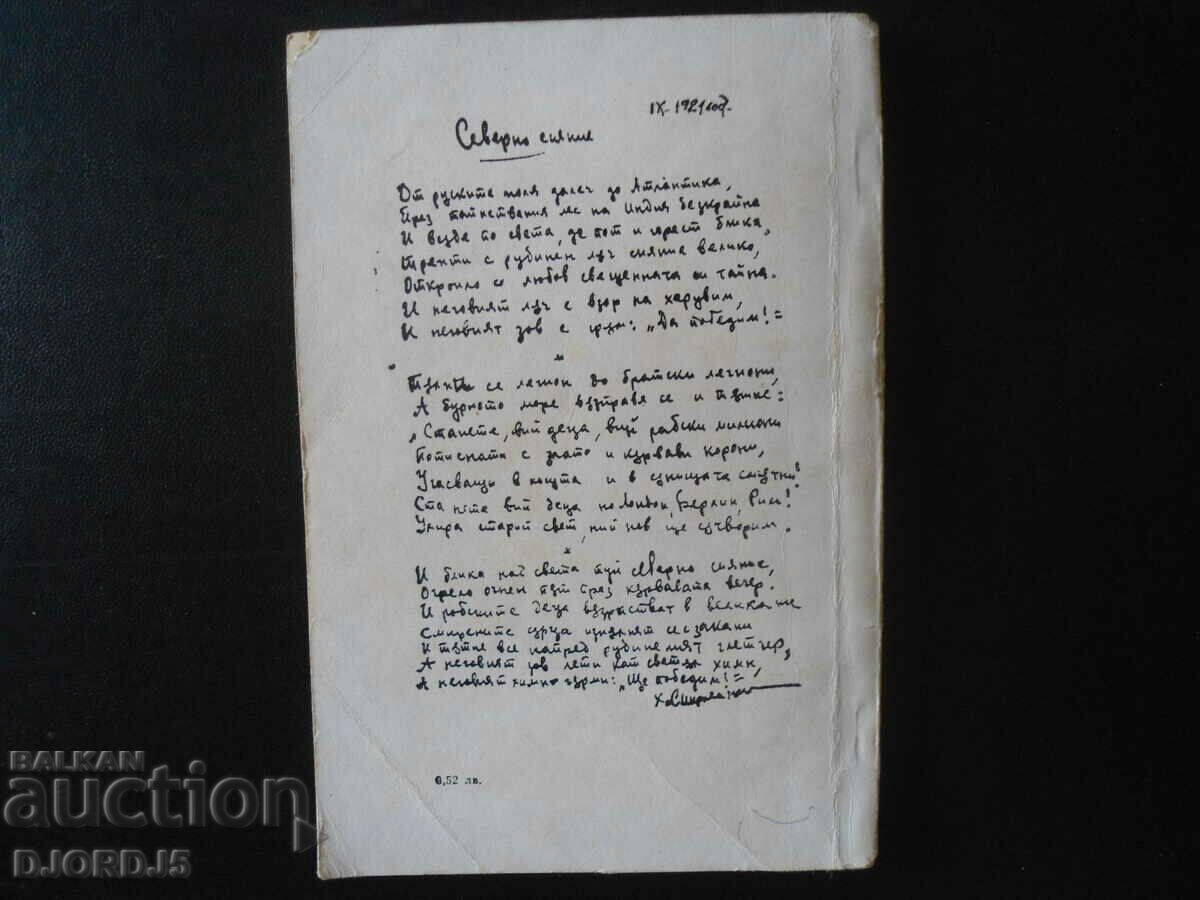 IX. 1921 год.
Северно сияние
От руските поля далеч до Атлантика,
През тайнствения лес на Индия безкрайна
И везде по света, де пот и горест блика,
Трепти с рубинен лъч сияние велико,
Открило со любов свещенната си тайна.
И неговият лъч е взор на херувим,
И неговият зов е гръм: „Да победим!"
*
се легион до братски легиони,
А бурното море възправя се и тътне:
„Станете, вий деца, вий рабски милиони
Потиснати с злато и кървави корони,
Угасващи в нощта и в сумрачината смътни!
Станете вий деца на Лондон, Берлин, Рим!
Умира старий свет, ний нов ще сътворим."
*
И блика над света туй северно сияние,
Огрело огнен път през кървавата вечер.
И робските деца възрастват в великани
Смирените сърца
И тътне все напред рубиненият глетчер,
А неговият зов лети кат светъл химн,
А неговият химн гърми: „Ще победим!"
Х. Смирненски
6,52 лв.
BALKAN
auction
DJORD_J5